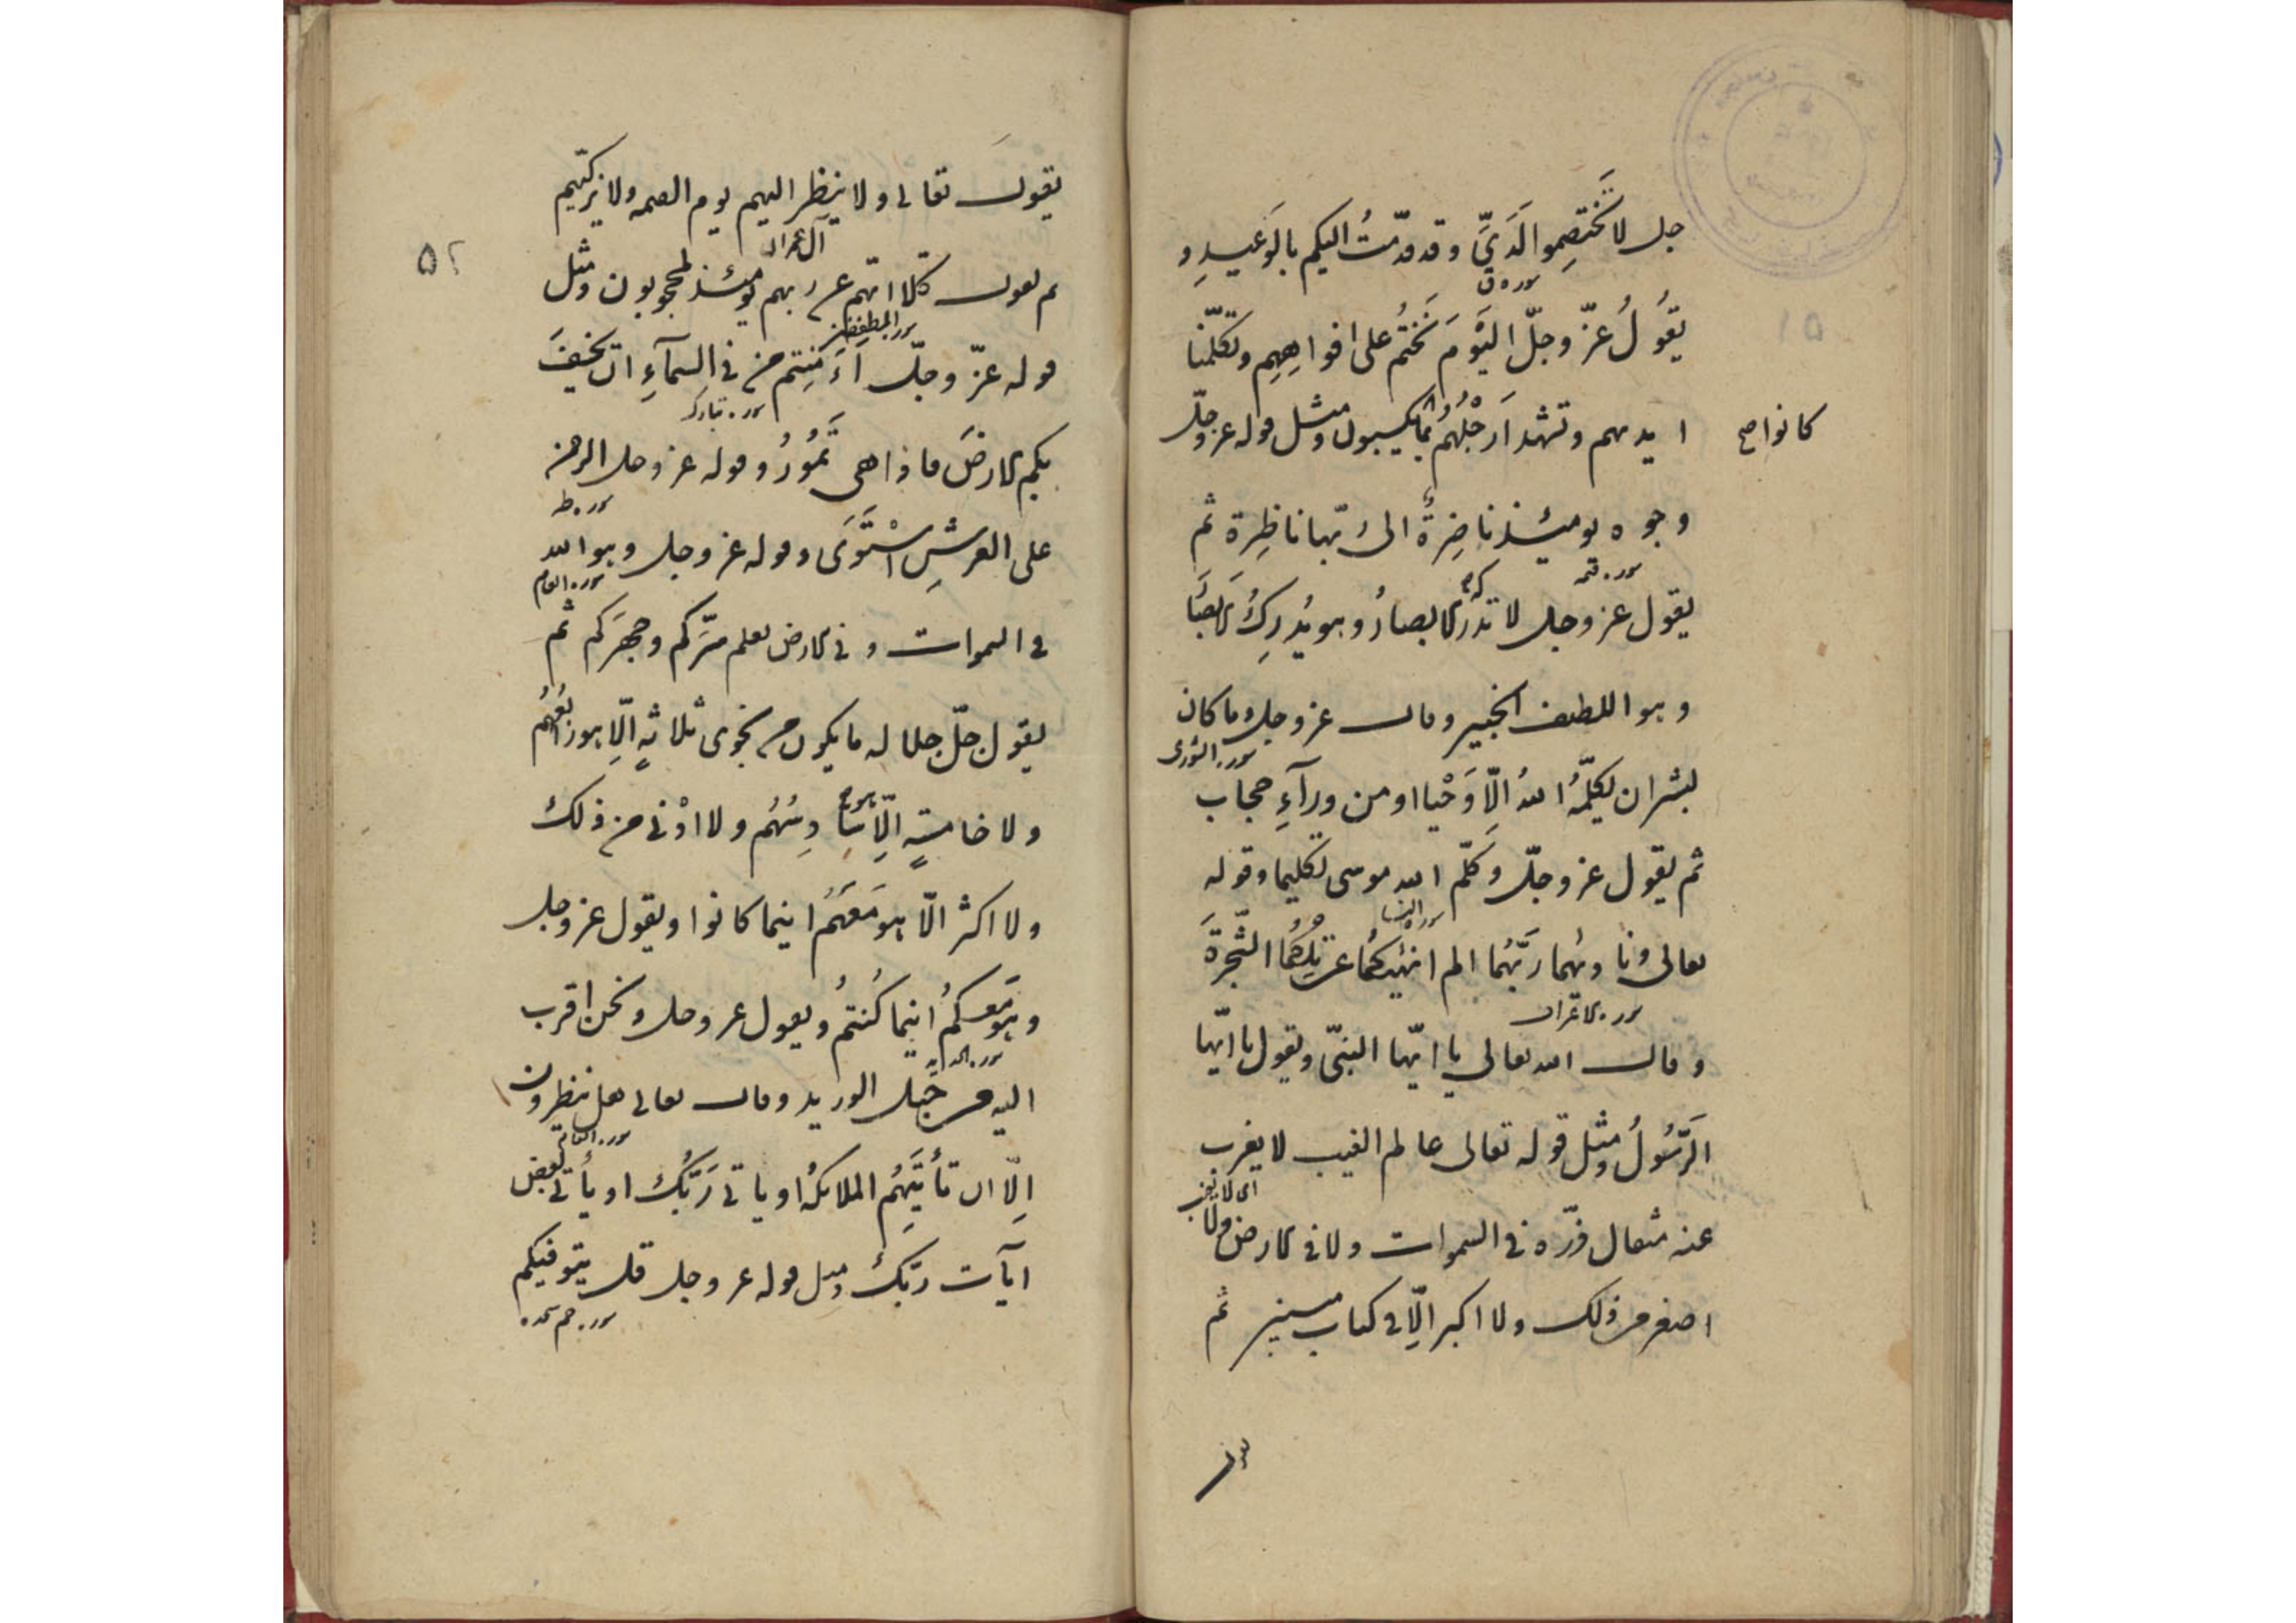 جل لا تَختصِموا لَدَيَّ وقد قدّمتُ اليكم بالوَعيدِ و
سوره ق
يقُولُ عزّ وجلّ اليَوْمَ نَختُم على افواهِهِم وتكلّمنا
ايديهم وتشهد اَرْجُلُهُم بما يكسبون ومثل قوله عز وجلّ
كانوا صح
وجوه يومئذ ناضِرةٌ الى ربّها ناظِرة ثم
سوره قيمه
يقول عز وجل لا تدركه الابصارُ وهو يُدرِكُ الابصَا
وهو اللطيف الخبير وقال عز وجل وما كان
سوره الشورى
لبشر ان يكلّمهُ اللهُ اِلّا وَحْيا او من ورآءِ حجاب
ثم يقول عز وجلّ وَكلّم الله موسى تكليما وقوله
سوره النسا
تعالى ونا ديهُما رَبّهُما الم انهَيكُما عن تِلْكُمُا الشّجَرَةَ
سوره الاعراف
وقال الله تعالى يا ايّها النبىّ ويقول يا ايّها
الرَّسُولُ ومثل قوله تعالى عالم الغيب لا يغرب
اى لا يغيب
عنه مثقال ذرّه في السموات ولا في الارض ولا
اصغر من ذلك ولا اكبر اِلّا في كتاب مبين ثم
يقول تعالى ولا ينظر اليهم يوم القيمه ولا يزكيّهم
آل عمران
ثم يقول كَلّا انّهم عن ربهم يومئذ لمحجوبون ومثل
سوره المطففين
قوله عزّ وجلّ ءَاَمَنِتم من في السمآءِ ان يخسِفَ
سوره تبارك
بكم الارضَ فاذا هى تَمُورُ وقوله عز وجل الرحمن
سوره طه
على العرشِ اسْتَوَى وقوله عز وجل وهو الله
سوره انعام
في السموات وفي الارض يعلم سّركم وجهرَكم ثم
يقول جلّ جلاله ما يكون من نجوى ثلاثهٍ اِلّا هو رابعُهُم
ولا خامسةٍ اِلّا هو سا دِسُهُم ولا ادْنى من ذلك
ولا اكثر الّا هو مَعَهُم اينما كانوا ويقول عز وجل
وهو مَعكمُ اينما كُنتمُ ويقول عز وجل ونحن اقرب
اليه من حَبْل الوريد وقال تعالى هل ينظرون
سوره انعام
اِلّا ان تأتيَهُم الملائكهُ او ياتى رَبّكُ او يأتى بعض
ايآت ربّكَ ومثل قوله عز وجل قل يتوفيكم
سوره حم سجده
٥٢
١٥